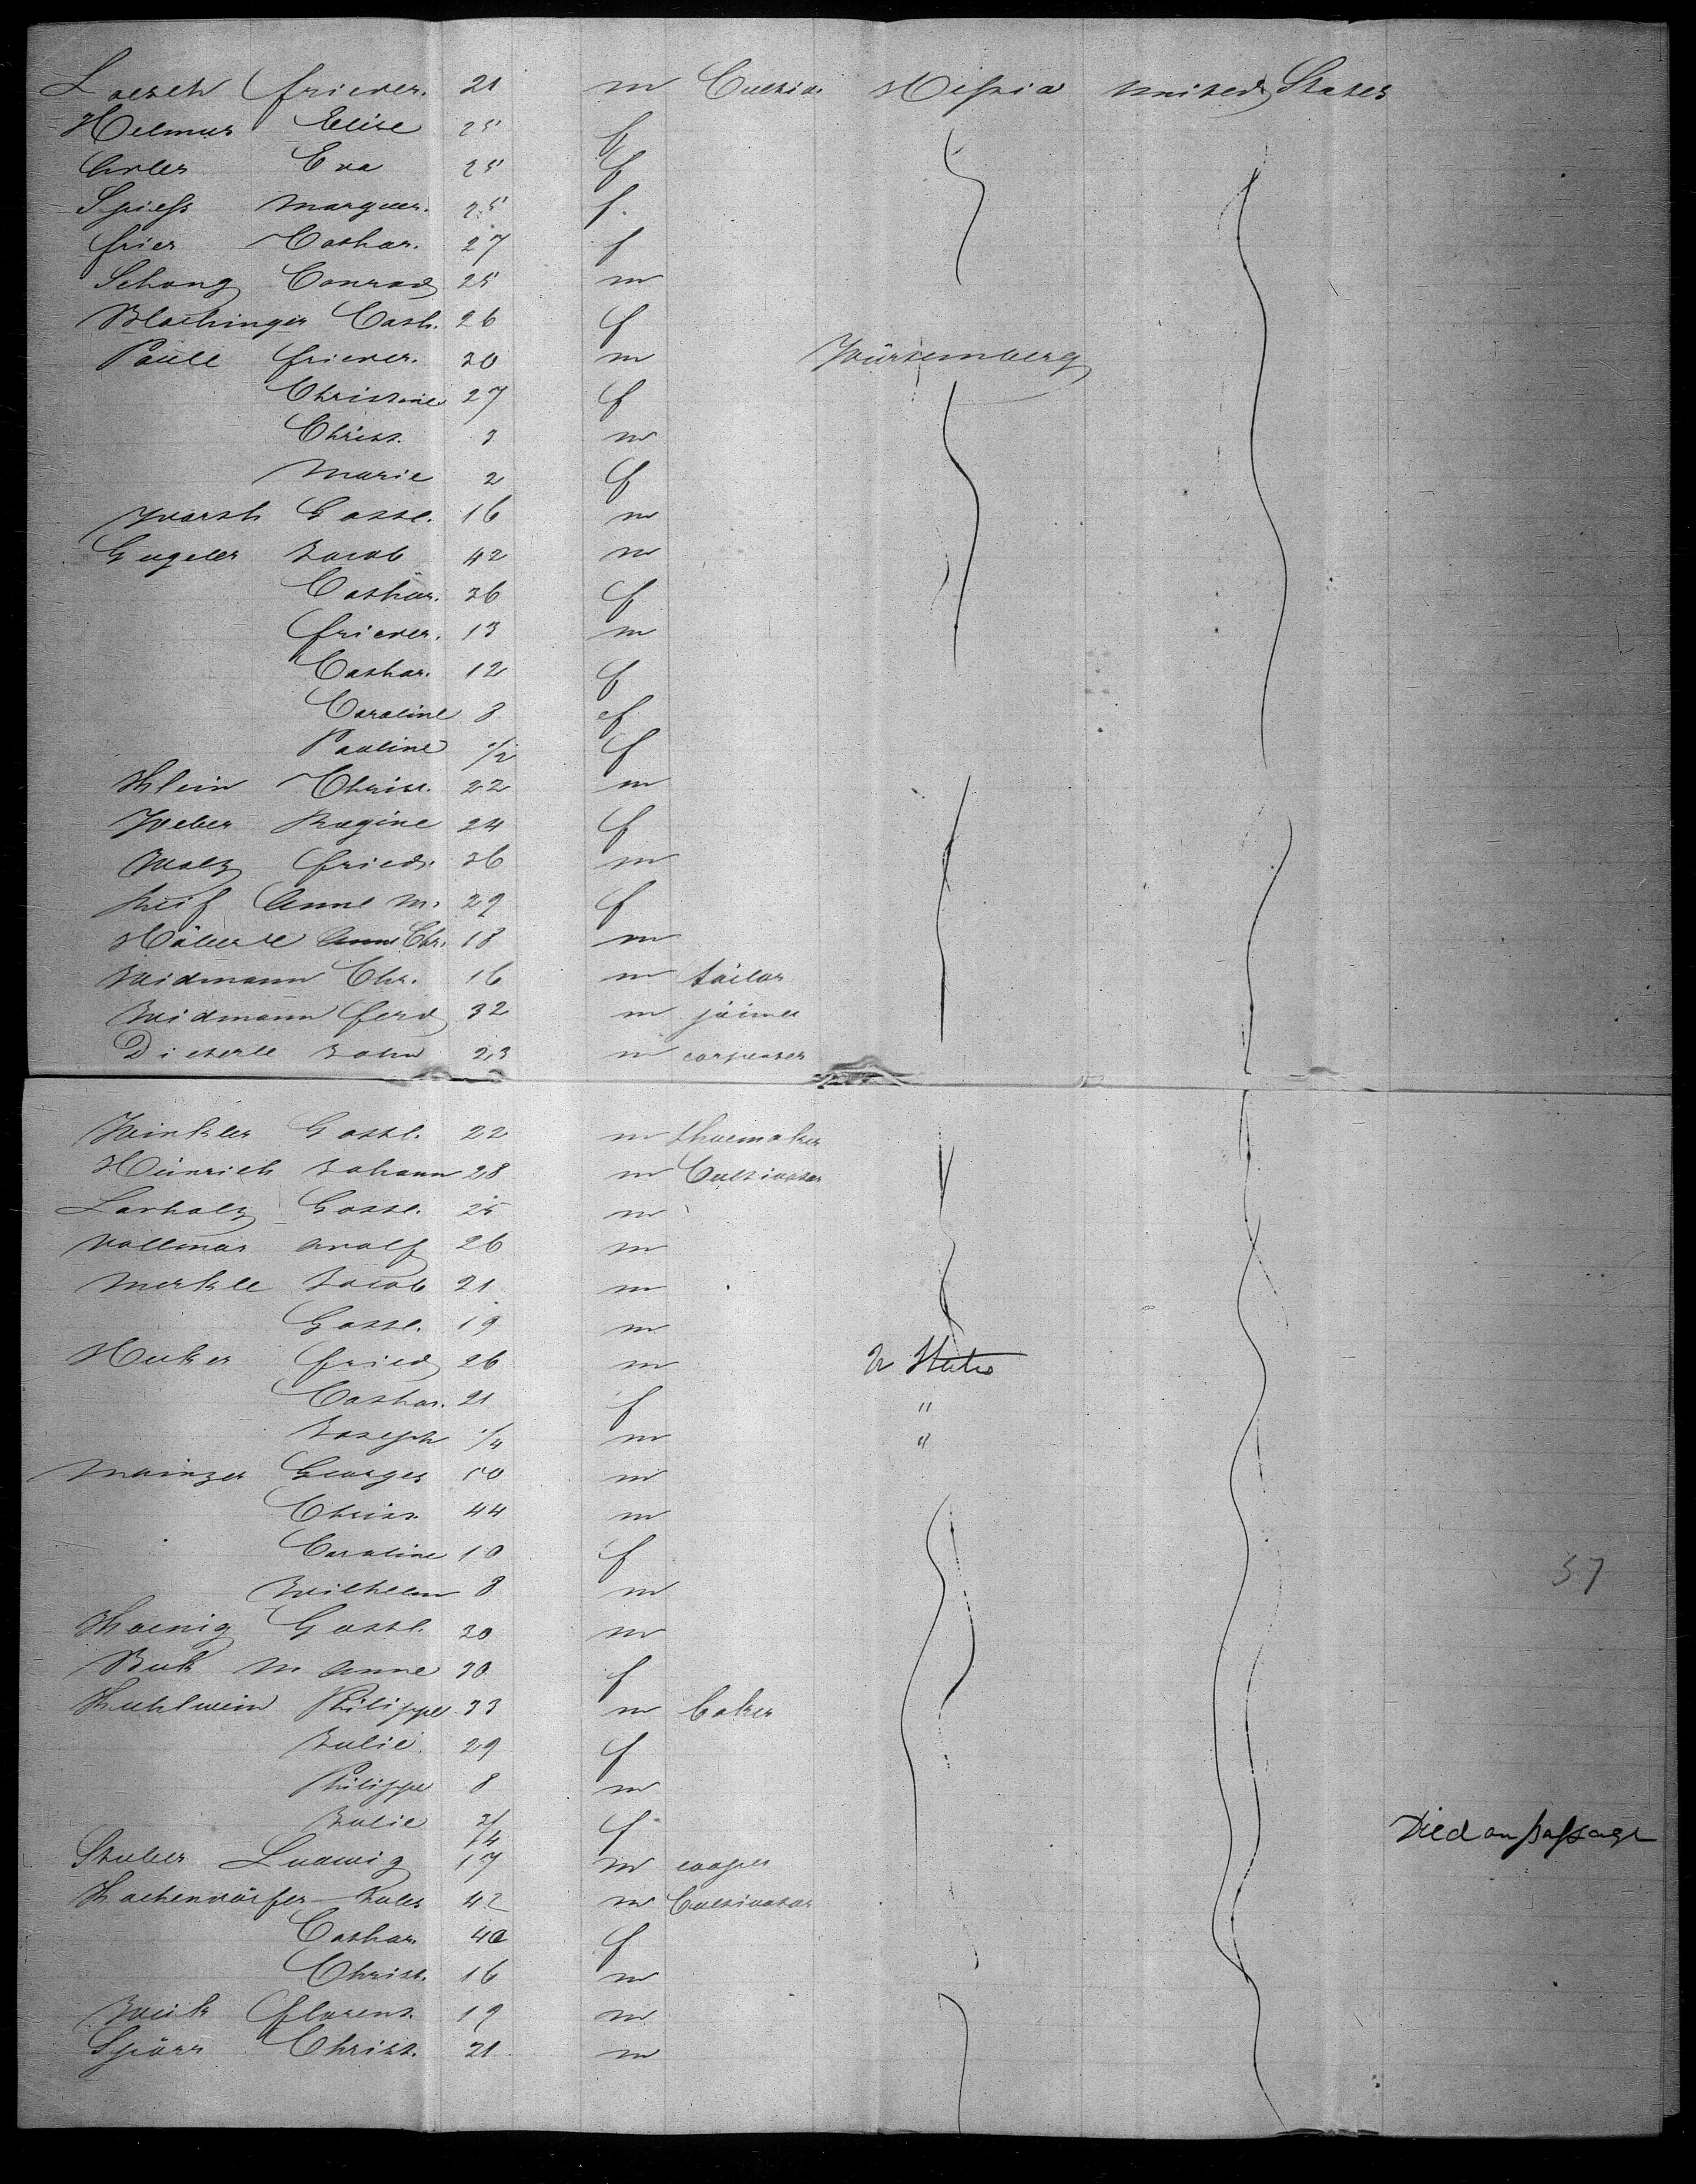 Loesch Frieder. 21 m Cultiv. Hessia United States
Helmus Elise 25 f
Adler Eva 25 f
Spiess Marguer. 25 f.
Frier Cathar. 27 f
Schong Conrad 25 m
Blachinger Cath. 26 f
Paule Frieder. 30 m Würtemberg
Christine 27 f
Christ. 3 m
Marie 2 f
Warth Gottl. 16 m
Gugeler Jacob 42 m
Cathar. 36 f
Frieder. 13 m
Cathar. 12 f
Caroline 8 f
Pauline 1/2 f
Klein Christ. 22 m
Weber Regine 24 f
Walz Fried. 36 m
Reif Anne M. 29 f
Häberle Chr. 18 m
Widmann Chr. 16 m tailor
Widmann Ferd 32 m joiner
Dieterle John 23 m carpenter
Winkler Gottl. 22 m shoemaker
Heinrich Johann 28 m Cultivator
Larholz Gottl. 25 m
Vollmar Adolf 26 m
Merkle Jacob 21 m
Gottl. 19 m
Huker Fried 26 m U States
Cathar. 21 f "
Joseph 1/4 m "
Mainzer Georges 50 m
Christ. 44 m
Caroline 10 f
Wilhelm 8 m 57
Koenig Gottl. 20 m
Buk M Anne 30 f
Kuhlwein Philippe 33 m baker
Julie 29 f
Philippe 8 m
Julie 3/4 f Died on passage
Stuber Ludwig 17 m cooper
Kachendörfer 42 m Cultivator
Cathar. 40 f
Christ. 16 m
Weik Florent. 19 m
Spörr Christ. 21 m